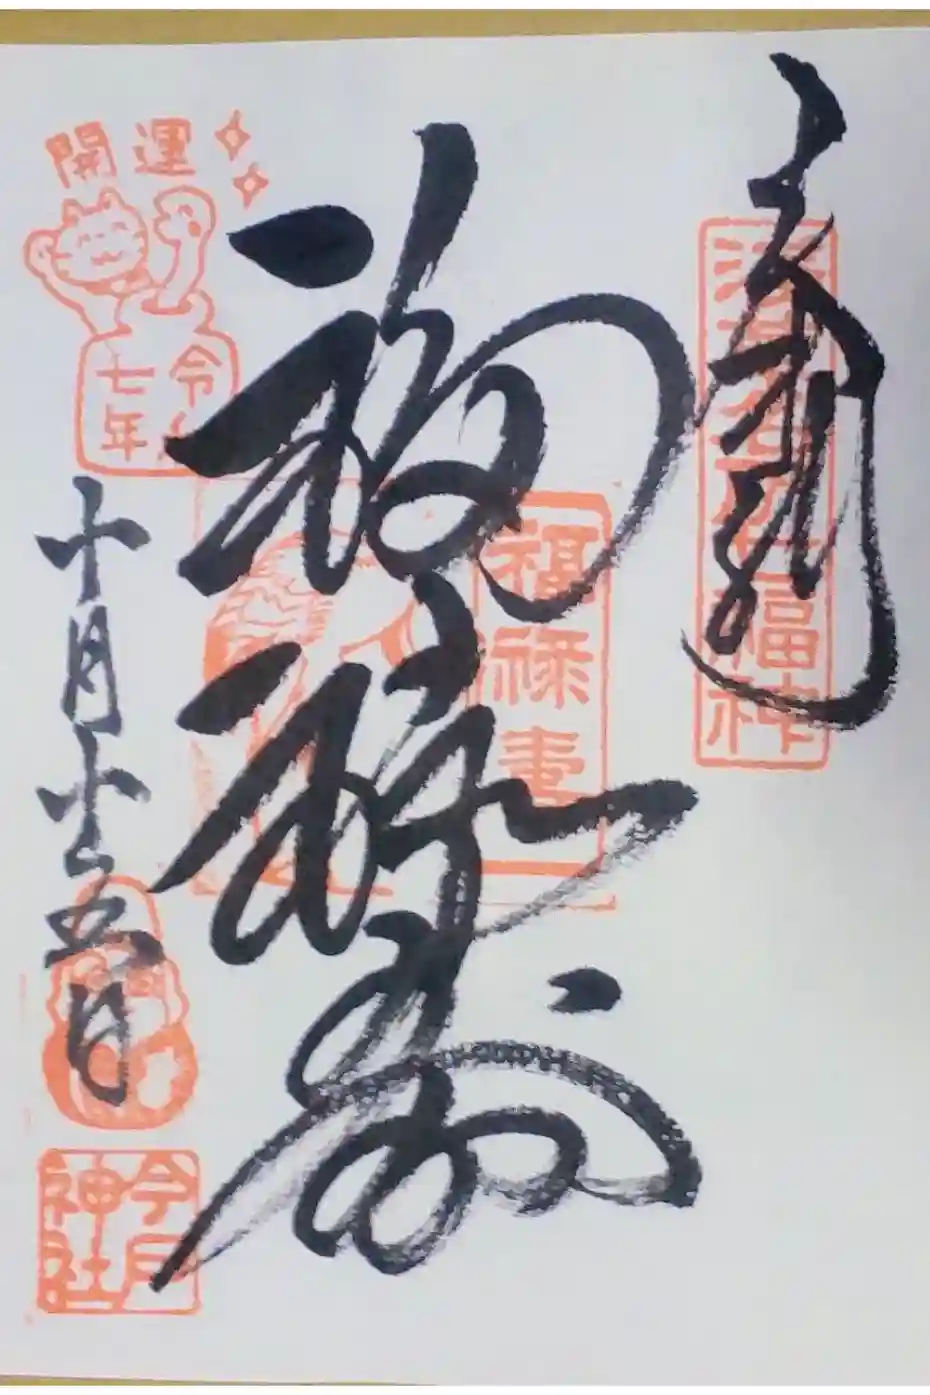 奉拝
浅草名所七福神
福禄寿
福禄寿
開運
令和
七年
十月十五日
今戸
神社